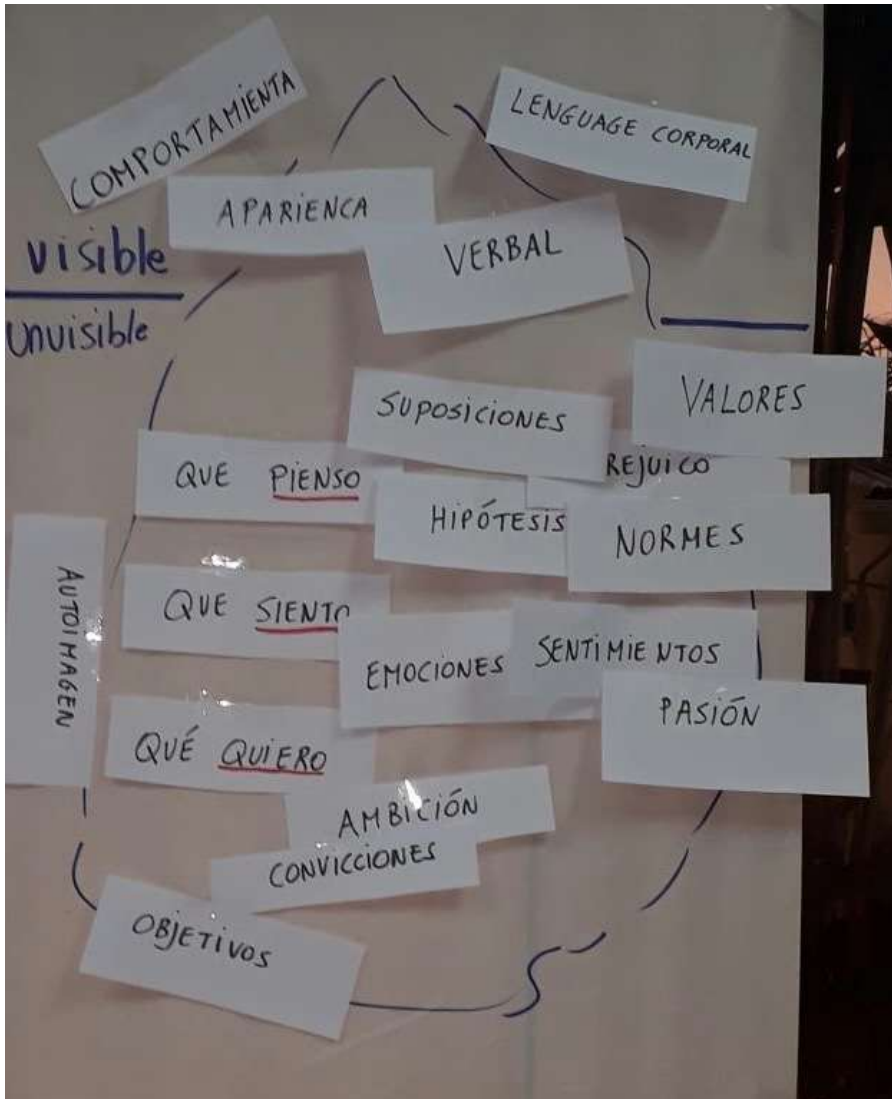 COMPORTAMIENTA
LENGUAGE CORPORAL
APARIENCA
VERBAL
visible
unvisible
SUPOSICIONES
VALORES
QUE PIENSO
REJUICO
HIPÓTESIS
NORMES
AUTOIMAGEN
QUE SIENTO
EMOCIONES
SENTIMIENTOS
PASIÓN
QUÉ QUIERO
AMBICIÓN
CONVICCIONES
OBJETIVOS